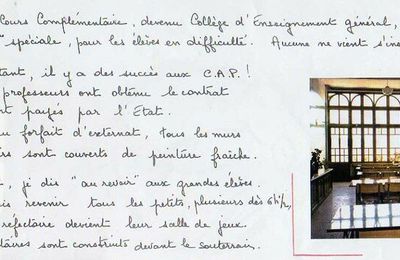 Cours Complémentaire, devenu Collège d'Enseignement général,
"spéciale, pour les élèves en difficulté. Aucune ne vient s'ins
tant, il y a des succès aux C.A.P.!
professeurs ont obtenu le contrat
nt payés par l'Etat.
u forfait d'externat, tous les murs
rs sont couverts de peinture fraîche.
, je dis "au revoir" aux grandes élèves.
is revenir tous les petits, plusieurs dès
refectoire devient leur salle de jeux.
taires sont construits devant le souterrain.